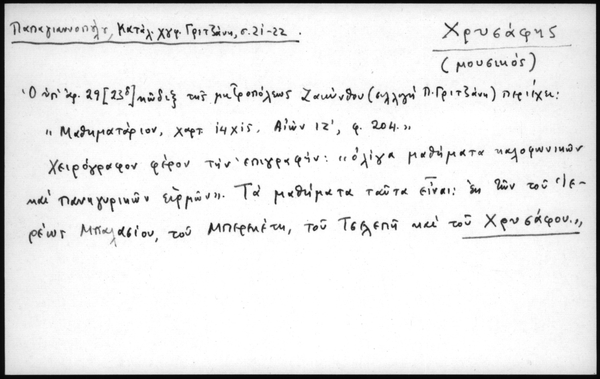 Παπαγιαννοπούλ, Κατάλ. χγφ. Γριτζάνη, σ. 21-22.
Χρυσάφης
(μουσικός)
Ὁ ὑπ' ἀρ. 29 [23δ] κῶδιξ τῆς μητροπόλεως Ζακύνθου (συλλογὴ Π. Γριτζάνη) περιέχει:
"Μαθηματάριον, χαρτ. 14Χ15. Αἰών ΙΖ', φ. 204."
Χειρόγραφον φέρον τὴν ἐπιγραφήν: "ὀλίγα μαθήματα καλοφωνικῶν
καὶ πανηγυρικῶν εἱρμῶν". Τὰ μαθήματα ταῦτα εἶναι: ἐκ τῶν τοῦ Ἱε-
ρέως Μπαλασίου, τοῦ Μπερεκέτη, τοῦ Τσελεπῆ καὶ τοῦ Χρυσάφου.",